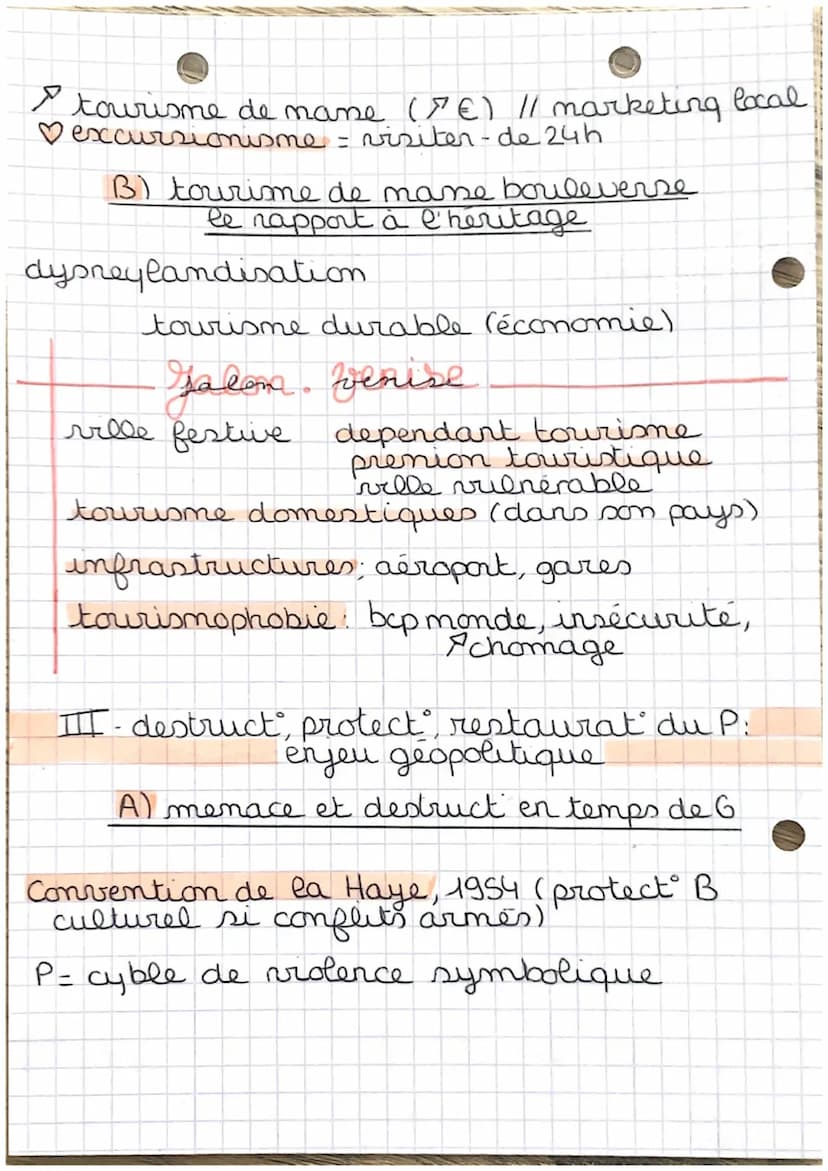 ↗ tourisme de masse (↗€) // marketing local
♡ excursionisme = visiter - de 24h
B) tourisme de masse bouleverse
le rapport à l'héritage
dysneylandisation
tourisme durable (économie)
Jalon. Venise
ville festive dependant tourisme
pression touristique
ville vulnérable
tourisme domestiques (dans son pays)
infrastructures; aéroport, gares
tourismophobie: bcp monde, insécurité,
↗chomage
III - destruct°, protect°, restaurat° du P:
enjeu géopolitique
A) menace et destruct° en temps de G
Convention de la Haye, 1954 (protect° B
culturel si conflits armés)
P= cyble de violence symbolique